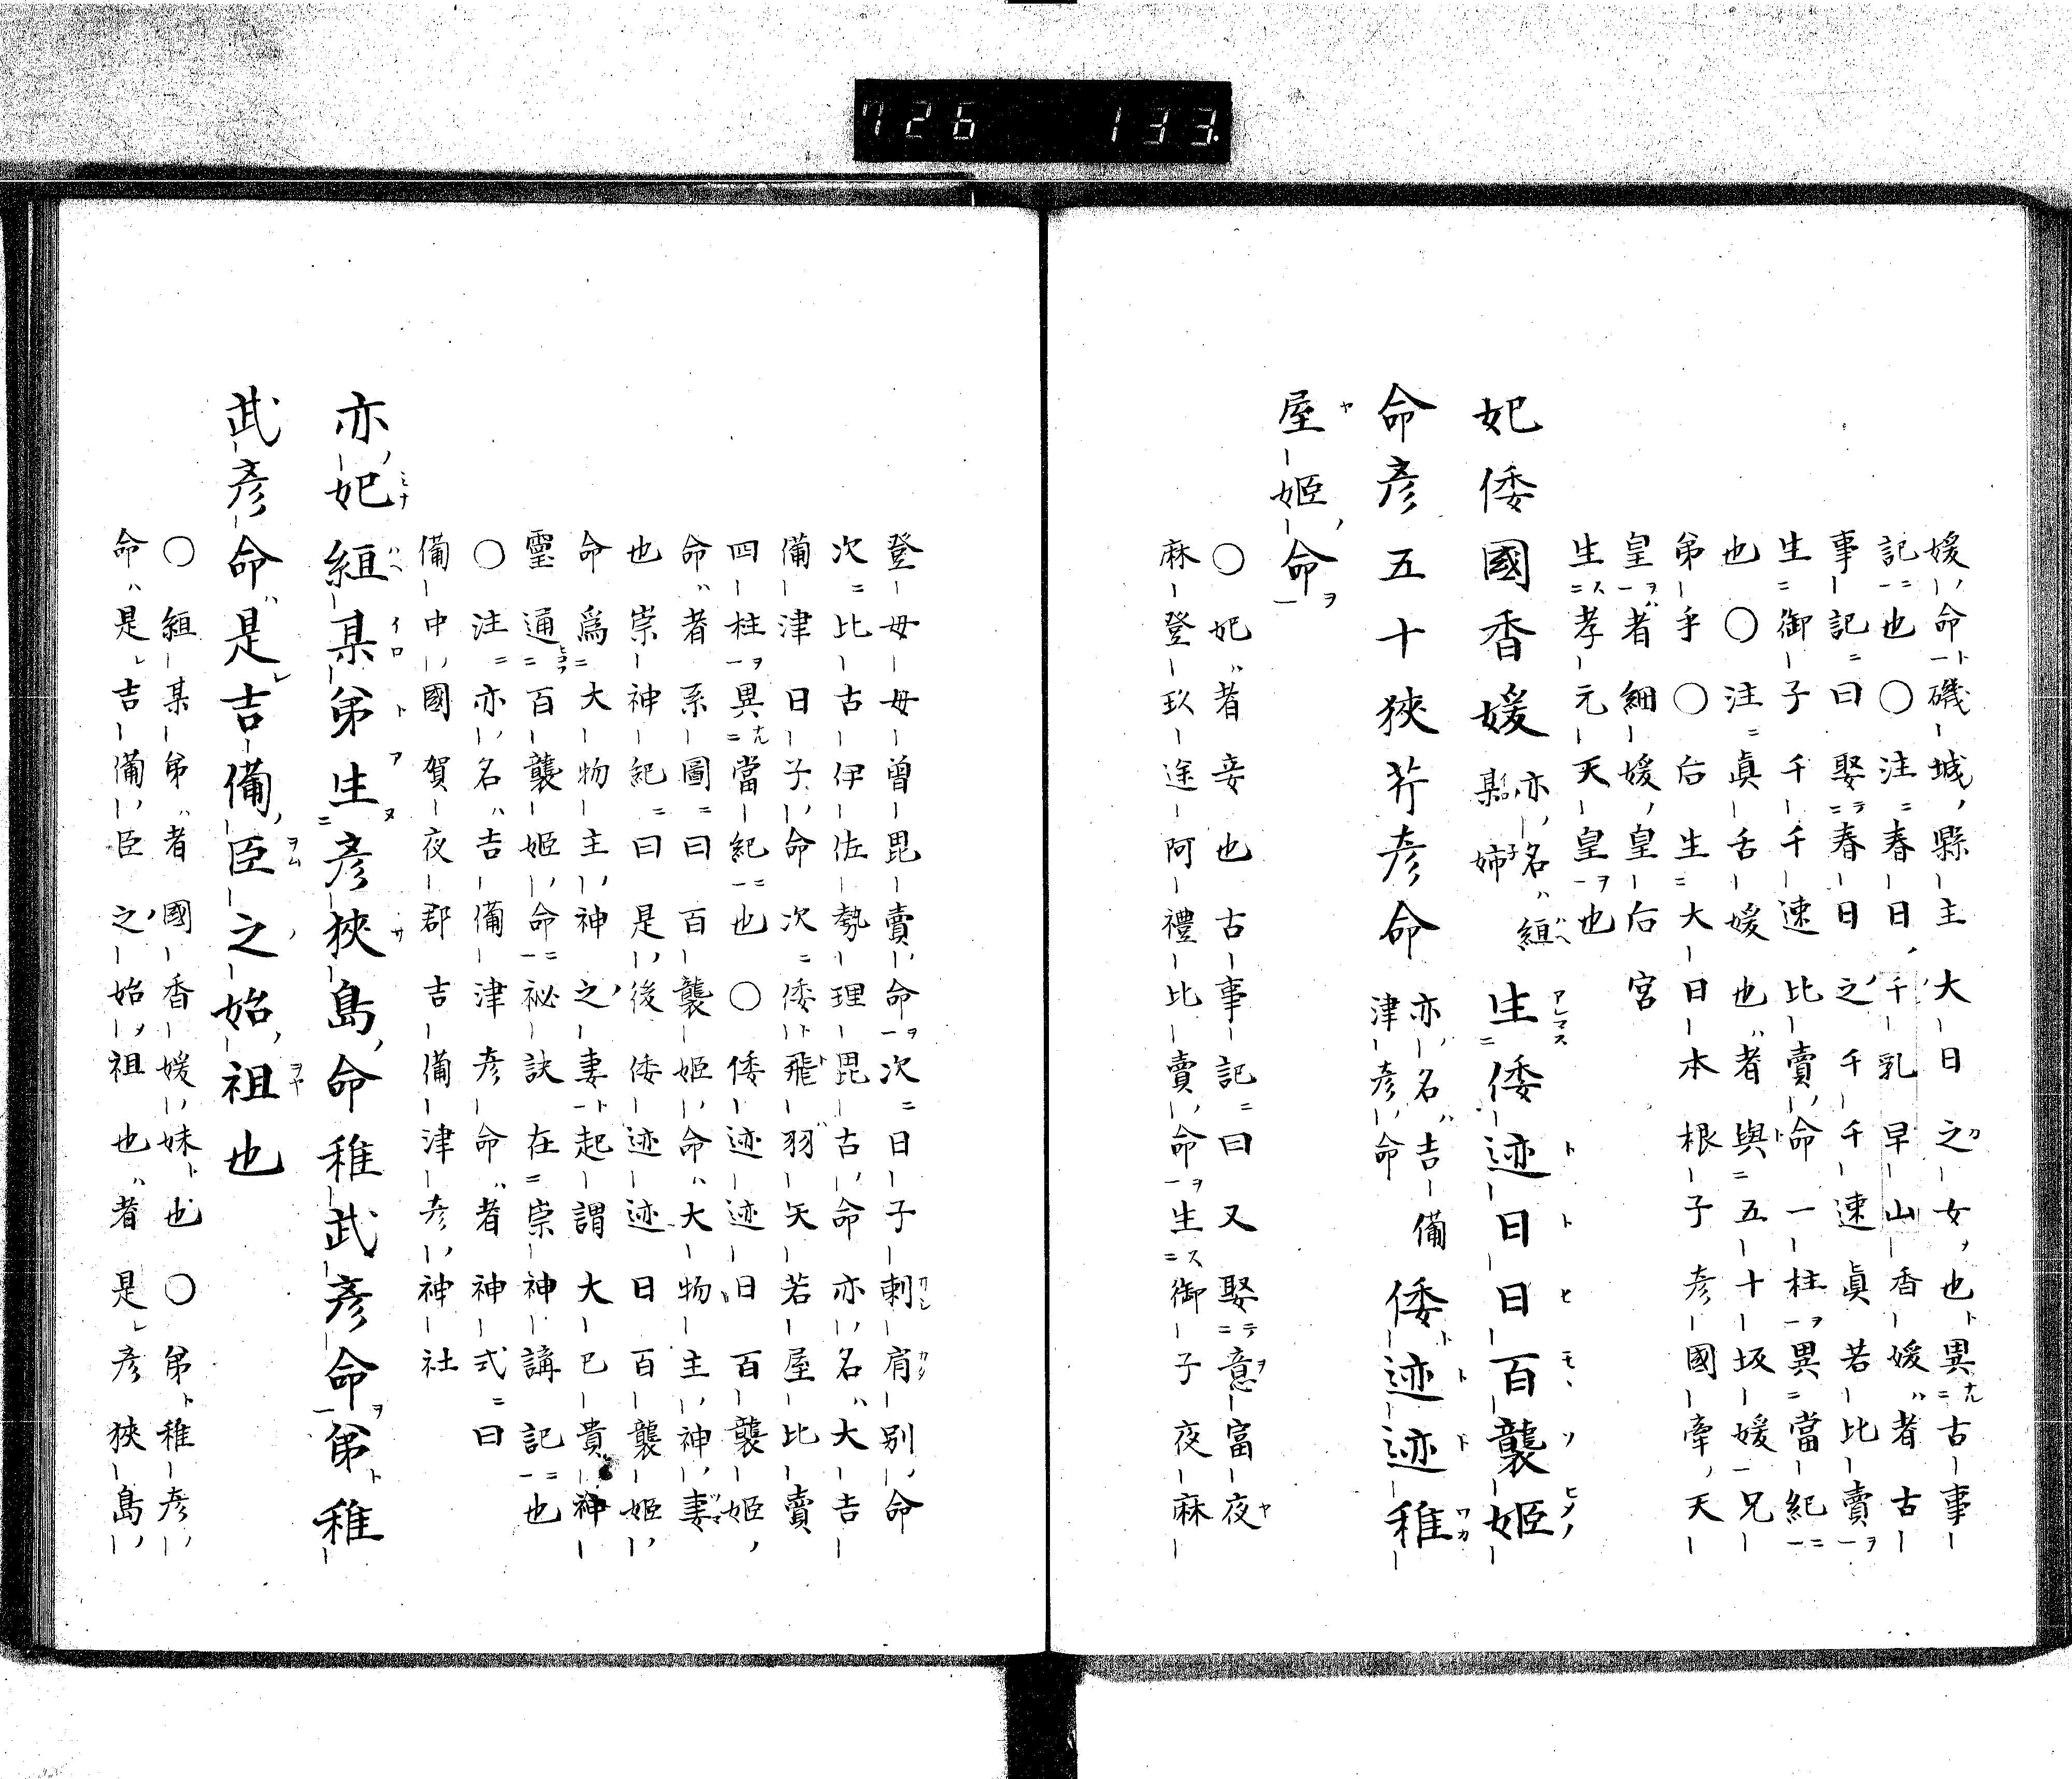 726 133
媛命磯城縣主大日之女也異古事
記也〇注春日千乳早山香媛者古
事記曰娶春日之千千速眞若比賣
生御子千千速比賣命一柱異當紀
也〇注眞舌媛也者與五十坂媛兄
弟乎〇后生大日本根子彦國牽天
皇者細媛皇后宮
生孝元天皇也
妃倭國香媛亦名絙某姉生倭迹日日百襲姫
命彦五十狹芹彦命亦名吉備津彦命倭迹迹稚
屋姫命
〇妃者妾也古事記曰又娶意富夜麻
登玖途阿禮比賣命生御子夜麻
登母母曽毘賣命次日子刺肩別命
次比古伊佐勢理毘古命亦名大吉
備津日子命次倭飛羽矢若屋比賣
四柱異當紀也〇倭迹迹日百襲姫
命者系圖曰百襲姫命大物主神妻
也崇神紀曰是後倭迹迹日百襲姫
命爲大物主神之妻起謂大已貴神
靈通百襲姫命祕訣在崇神講記也
〇注亦名吉備津彦命者神式曰
備中國賀夜郡吉備津彦神社
亦妃絙某弟生彦狹島命稚武彦命弟稚
武彦命是吉備臣之始祖也
〇絙某弟者國香媛妹也〇弟稚彦
命是吉備臣之始祖也者是彦狹島